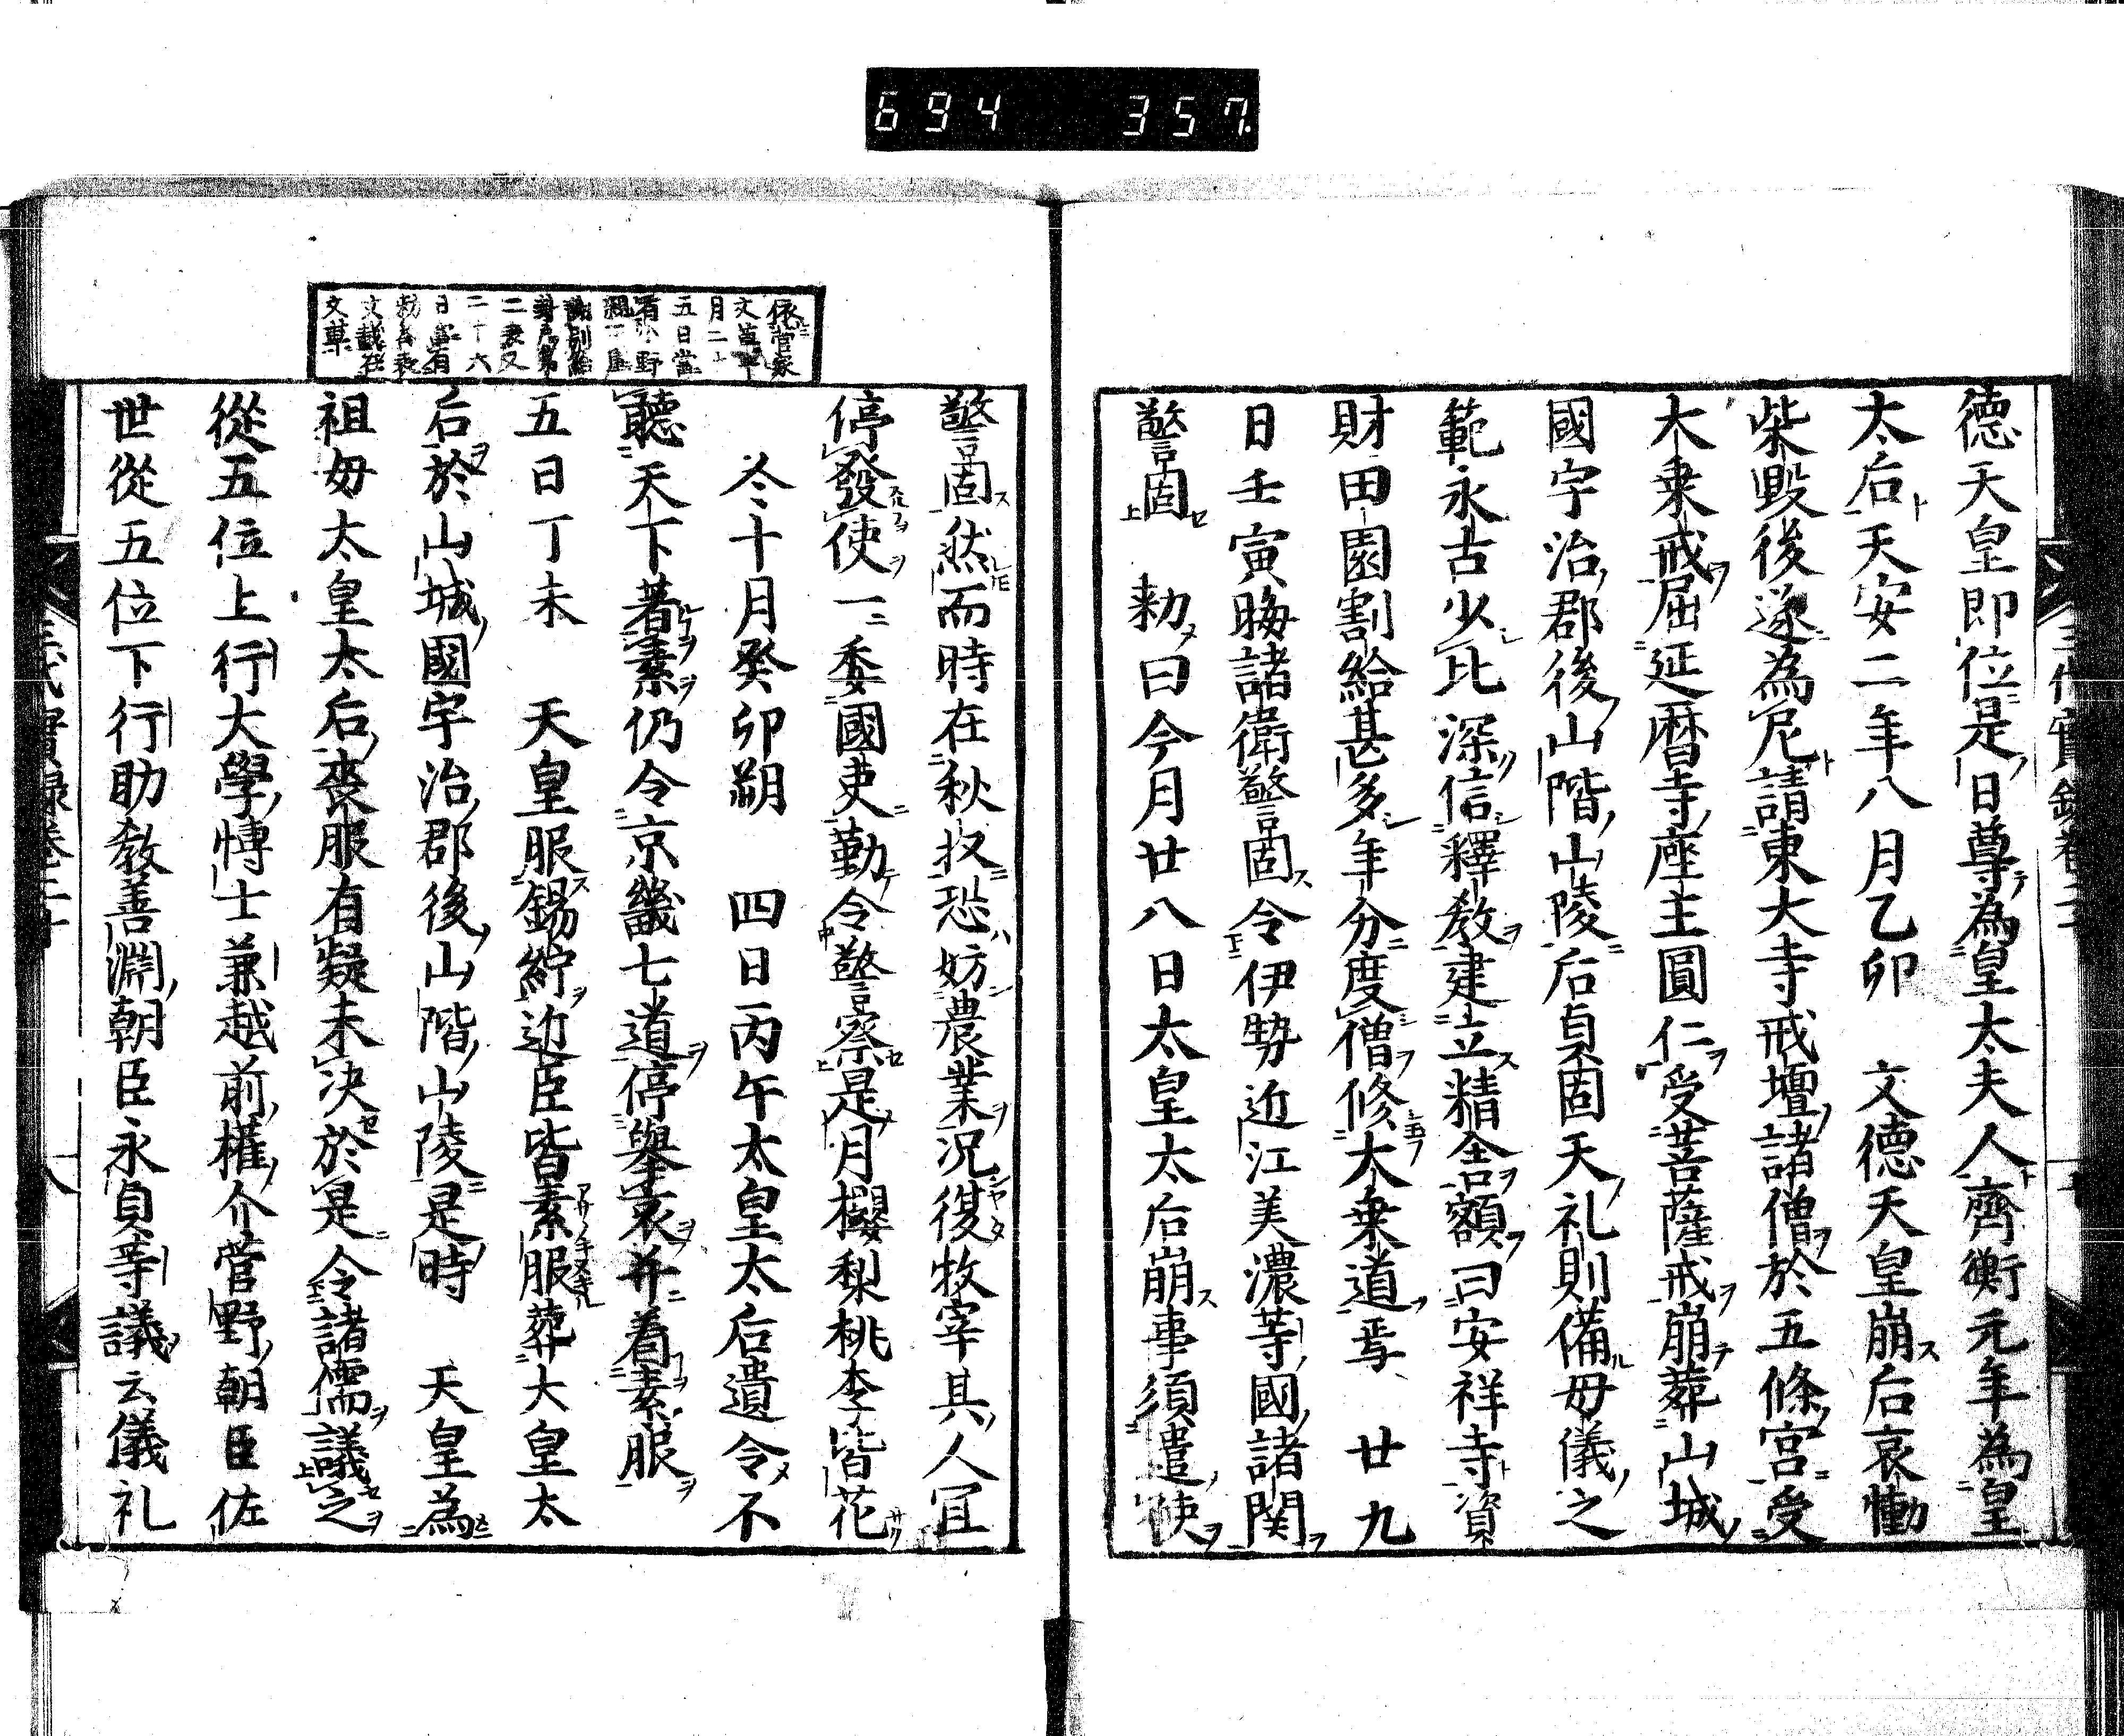 694 357.
德天皇即位是日尊為皇太夫人齊衡元年為皇
太后天安二年八月乙卯 文德天皇崩后哀慟
柴毀後遂為尼請東大寺戒壇諸僧於五條宮受
大乗戒屈延曆寺座主圓仁受菩薩戒崩葬山城
國宇治郡後山階山陵后貞固天礼則備毋儀之
範永古少比深信釋教建立精舍額曰安祥寺資
財田園割給甚多年分度僧修大乗道焉 廿九
日壬寅晦諸衛警固令伊勢近江美濃等國諸関
警固 勅曰今月廿八日太皇太后崩事須遣使
警固然而時在秋収恐妨農業況復牧宰其人宜
停發使一委國吏勤令警察是月櫻梨桃李皆花
冬十月癸卯朔 四日丙午太皇太后遺令不
聽天下著素仍令京畿七道停擧哀并着素服
五日丁未 天皇服錫紵近臣皆素服葬大皇太
后於山城國宇治郡後山階山陵是時 天皇為
祖毋太皇太后喪服有疑未決於是令諸儒議之
從五位上行大學博士兼越前權介菅野朝臣佐
世從五位下行助教善淵朝臣永貞等議云儀礼